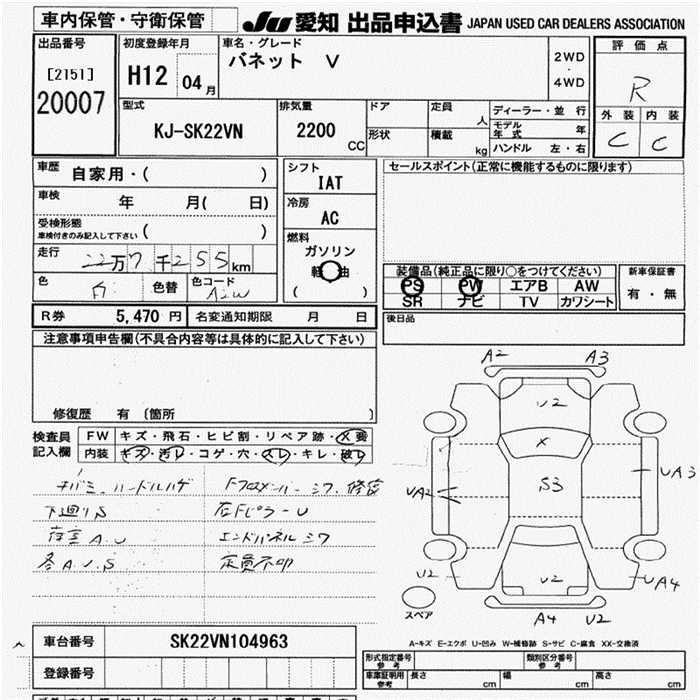 車内保管・守衛保管
JU 愛知 出品申込書 JAPAN USED CAR DEALERS ASSOCIATION
出品番号
[2151]
20007
初度登録年月
H12 04月
車名・グレード
バネット V
2WD
・
4WD
評価点
R
外装 内装
C C
型式
KJ-SK22VN
排気量
2200
CC
ドア
形状
定員
人
積載
kg
ディーラー・並行
モデル年式 年
ハンドル 左・右
車歴
自家用・( )
車検
年 月( 日)
受検形態
車検付きのみ記入して下さい ( )
走行
22万7千255km
色
白
色替
色コード
A2W
シフト
IAT
冷房
AC
燃料
ガソリン
軽油
( )
セールスポイント(正常に機能するものに限ります)
装備品(純正品に限り○をつけてください)
PS PW エアB AW
SR ナビ TV カワシート
新車保証書
有・無
後日品
R券 5,470円 名変通知期限 月 日
注意事項申告欄(不具合内容等は具体的に記入して下さい)
修復歴 有 〔箇所 〕
検査員記入欄
FW キズ・飛石・ヒビ割・リペア跡・X要
内装 キズ・汚レ・コゲ・穴・スレ・キレ・破レ
下廻りS
エンドパネル シワ
各A.U.S
定員不明
A2 A3
U2
X
S3
UA2
UA3
U2
U2
UA4
A4 U2
スペア
A-キズ E-エクボ U-凹み W-補修跡 S-サビ C-腐食 XX-交換済
車台番号 SK22VN104963
登録番号
形式指定番号
参考
類別区分番号
参考
車庫証明用
参考
長さ cm
幅 cm
高さ cm